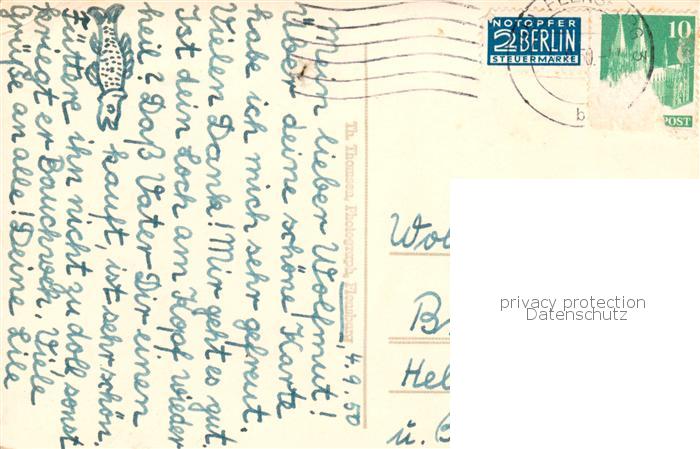 4.9.50
Mein lieber Wolfmut!
Über deine schöne Karte
habe ich mich sehr gefreut.
Vielen Dank! Mir geht es gut.
Ist dein Loch am Kopf wieder
heil? Daß Vater Dir einen
kauft, ist sehr schön.
Füttere ihn nicht zu doll, sonst
kriegt er Bauchweh. Viele
Grüße an alle! Deine Lile
Th. Thomsen, Photograph, Flensburg
NOTOPFER
2 BERLIN
STEUERMARKE
10
POST
b
Wo
B
Hel
u. B
privacy protection
Datenschutz